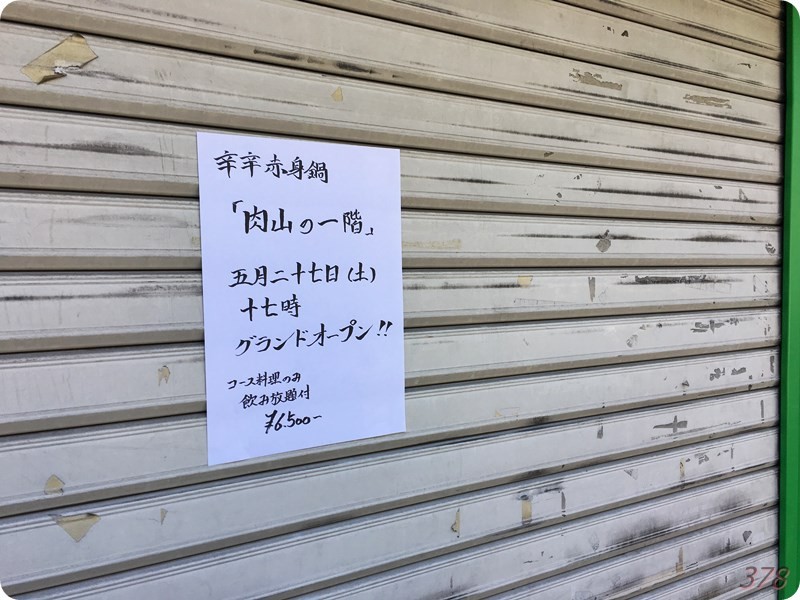 辛辛赤身鍋
「肉山の一階」
五月二十七日(土)
十七時
グランドオープン!!
コース料理のみ
飲み放題付
¥6.500-
378